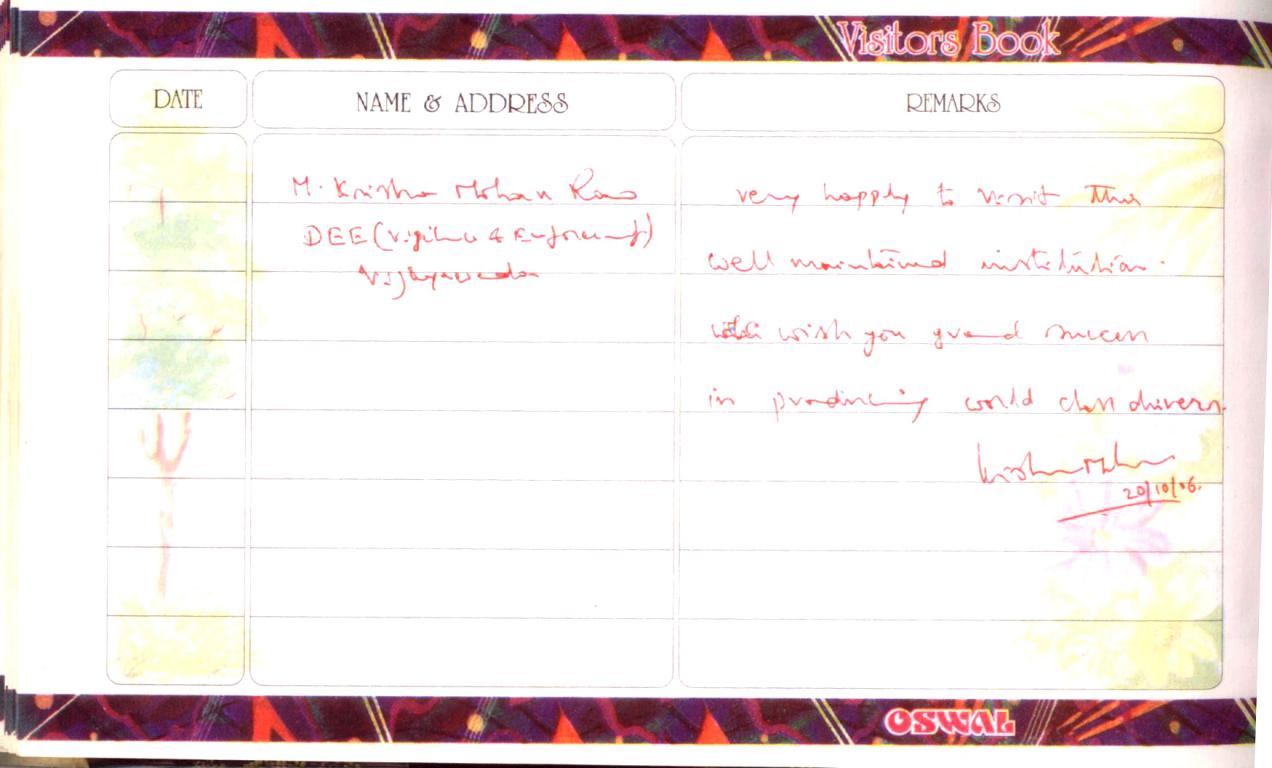 Visitors Book
DATE
NAME & ADDRESS
REMARKS
M. Krishna Mohan Rao
DEE (Vigilance & Enforcement)
Vijayawada
very happly to visit this
well maintained institution.
wish you grand success
in producing world class drivers.
Krishna Mohan
20/10/06.
OSWAL